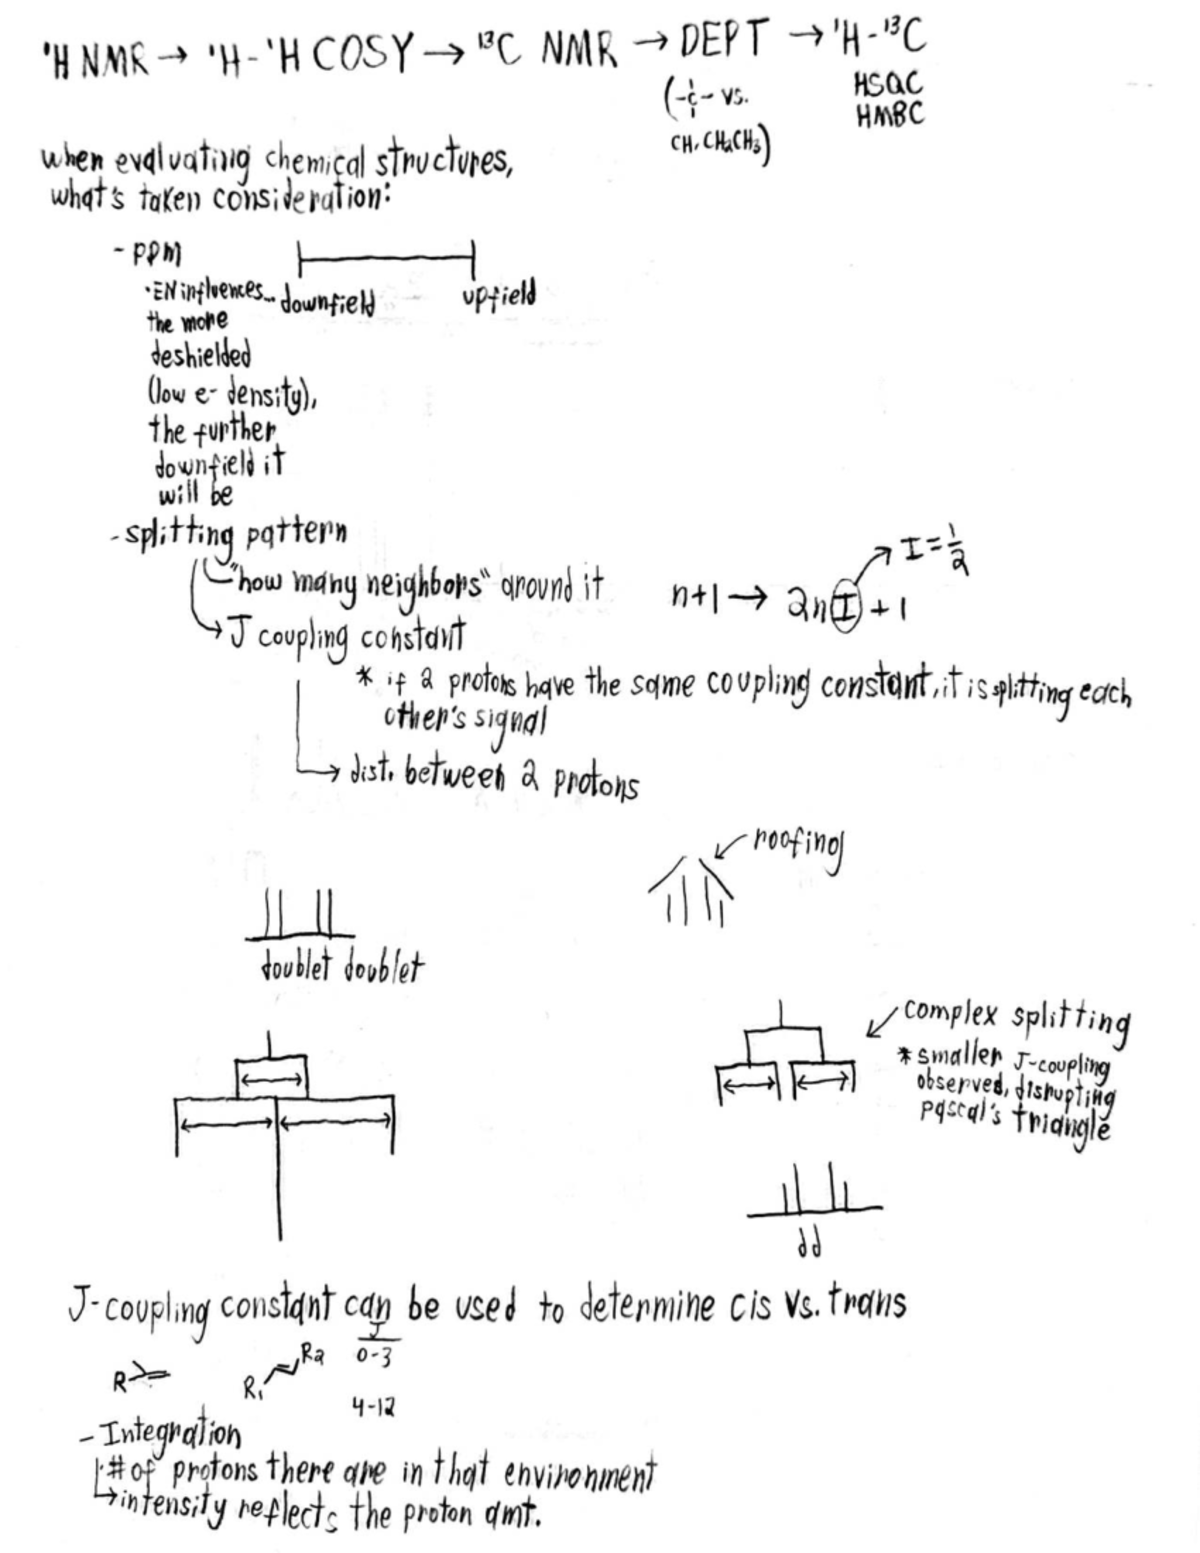 ¹H NMR → ¹H-¹H COSY → ¹³C NMR → DEPT → ¹H-¹³C
(-C- vs.
CH, CH₂CH₃)
HSQC
HMBC
when evaluating chemical structures,
what's taken consideration:
- ppm
·EN influences...
the more
deshielded
(low e- density),
the further
downfield it
will be
downfield
upfield
- splitting pattern
"how many neighbors" around it
n+1 → 2nI + 1
I = 1/2
→ J coupling constant
* if 2 protons have the same coupling constant, it is splitting each
other's signal
→ dist. between 2 protons
roofing
doublet doublet
complex splitting
* smaller J-coupling
observed, disrupting
pascal's triangle
dd
J-coupling constant can be used to determine cis vs. trans
J
R
R₁
R₂
0-3
4-12
- Integration
·# of protons there are in that environment
→ intensity reflects the proton amt.